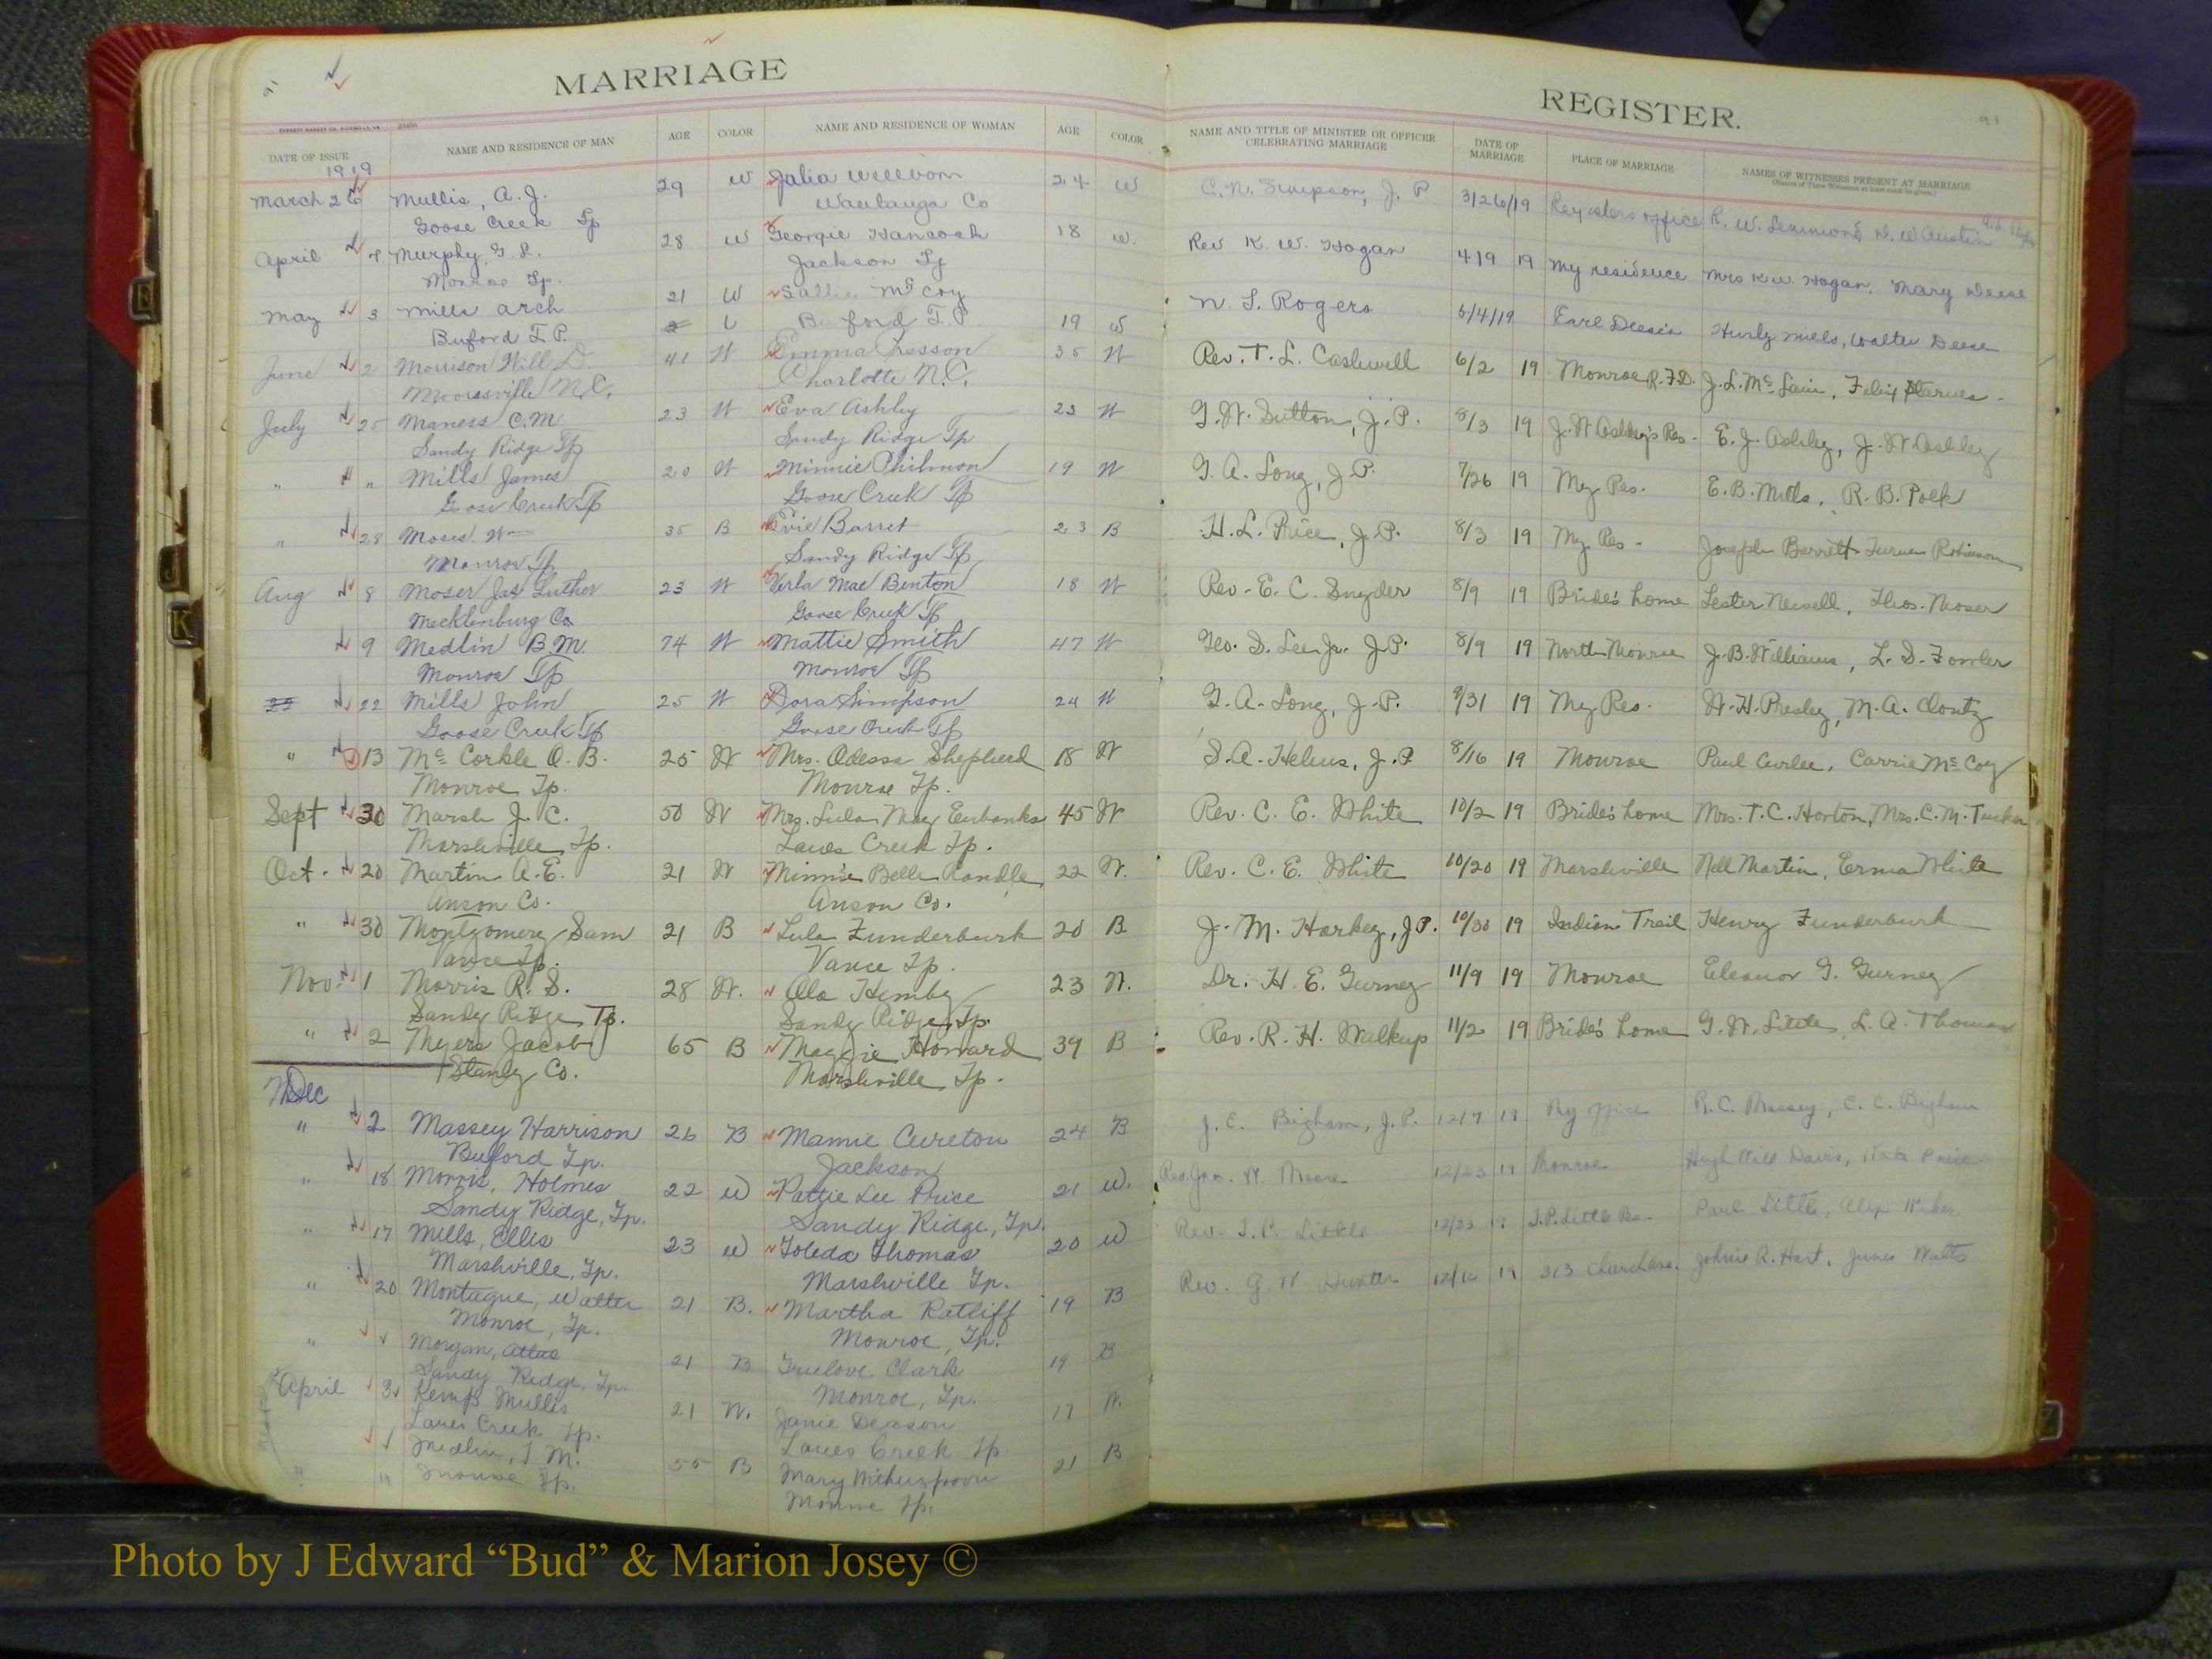 MARRIAGE REGISTER.
91 91
EVERETT WADDEY CO. RICHMOND, VA
DATE OF ISSUE NAME AND RESIDENCE OF MAN AGE COLOR NAME AND RESIDENCE OF WOMAN AGE COLOR NAME AND TITLE OF MINISTER OR OFFICER CELEBRATING MARRIAGE DATE OF MARRIAGE PLACE OF MARRIAGE NAMES OF WITNESSES PRESENT AT MARRIAGE
(Names of Three Witnesses at least must be given.)
1919
March 26 Mullis, A. J. 29 W Julia Wellborn 24 W C. N. Simpson, J. P 3/26/19 Registers office R. W. Lemmond, D. W Austin
Goose Creek Tp Watauga Co
April Murphy, G. L. 28 W Georgie Hancock 18 W. Rev K. W. Hogan 4 19 19 My residence Mrs K. W. Hogan, Mary Deese
Monroe Tp. Jackson Tp
May 3 Mills Arch 21 W Sallie McCoy 19 W N. S. Rogers 5/4/19 Earl Deese's Hurly Mills, Walter Deese
Buford T. P. Buford T. P.
June 2 Morrison Will D. 41 W Emma Presson 35 W Rev. T. L. Cashwell 6/2 19 Monroe R.F.D. J. L. McLain, Felix Starnes
Mooresville N.C. Charlotte N.C.
July 25 Maness C. M. 23 W Eva Ashley 23 W G. W. Sutton, J. P. 8/3 19 J. W Ashley's Res. E. J. Ashley, J. W Ashley
Sandy Ridge Tp Sandy Ridge Tp
" " Mills James 20 W Minnie Philmon 19 W G. A. Long, J P. 7/26 19 My Res. E. B. Mills, R. B. Polk
Goose Creek Tp Goose Creek Tp
" 28 Moses W 35 B Evie Barret 23 B H. L. Price, J. P. 8/3 19 My Res. Joseph Barrett Turner Robinson
Monroe Tp Sandy Ridge Tp
Aug 8 Moser Jas Luther 23 W Verla Mae Benton 18 W Rev. E. C. Snyder 8/9 19 Bride's home Lester Newell, Thos. Moser
Mecklenburg Co. Goose Creek Tp
9 Medlin B. M. 74 W Mattie Smith 47 W Geo. S. Lee Jr. J P. 8/9 19 North Monroe J. B. Williams, L. D. Fowler
Monroe Tp Monroe Tp
22 Mills John 25 W Dora Simpson 24 W G. A. Long, J. P. 8/31 19 My Res. W. H. Presley, M. A. Clontz
Goose Creek Tp Goose Creek Tp
" 13 McCorkle O. B. 25 W Mrs. Odessa Shepherd 18 W S. A. Helms, J. P 8/16 19 Monroe Paul Curlee, Carrie McCoy
Monroe Tp. Monroe Tp.
Sept 30 Marsh J. C. 50 W Mrs. Lula May Eubanks 45 W Rev. C. E. White 10/2 19 Bride's home Mrs. T. C. Horton, Mrs. C. M. Tucker
Marshville Tp. Lanes Creek Tp.
Oct. 20 Martin A. E. 21 W Minnie Belle Randle 22 W. Rev. C. E. White 10/20 19 Marshville Nell Martin, Erma White
Anson Co. Anson Co.
" 30 Montgomery Sam 21 B Lula Funderburk 20 B J. M. Harkey, J P. 10/30 19 Indian Trail Henry Funderburk
Vance Tp. Vance Tp.
Nov. 1 Morris R. S. 28 W. Ola Hemby 23 W. Dr. H. E. Gurney 11/9 19 Monroe Eleanor G. Gurney
Sandy Ridge Tp. Sandy Ridge Tp.
" 2 Myers Jacob 65 B Maggie Howard 39 B Rev. R. H. Walkup 11/2 19 Bride's home G. W. Little, L. A. Thomas
Stanly Co. Marshville Tp.
Dec
" 2 Massey Harrison 26 B Mamie Cureton 24 B J. E. Bigham, J. P. 12/7 19 My office R. C. Massey, C. C. Bigham
Buford Tp. Jackson
" 18 Morris, Holmes 22 W Pattie Lee Price 21 W. Rev. Jno. W. Moore 12/23 19 Monroe Hugh Davis, Price
Sandy Ridge, Tp. Sandy Ridge, Tp.
" 17 Mills, Ellis 23 W Toleda Thomas 20 W Rev. J. P. Little 12/23 19 J. P. Little Res. Paul Little, Alex
Marshville, Tp. Marshville Tp.
" 20 Montague, Walter 21 B. Martha Ratliff 19 B Rev. G. W. Hunter 12/ 19 313 Johnie R. Hart, James Watts
Monroe, Tp. Monroe, Tp.
" Morgan, 21 B Truelove Clark 19 B
Sandy Ridge, Tp. Monroe, Tp.
April 3 Kemp Mullis 21 W. Janie Deason 17 W.
Lanes Creek Tp. Lanes Creek Tp
" " Medlin, J. M. 55 B Mary Witherspoon 21 B
Monroe Tp. Monroe Tp.
Photo by J Edward “Bud” & Marion Josey ©